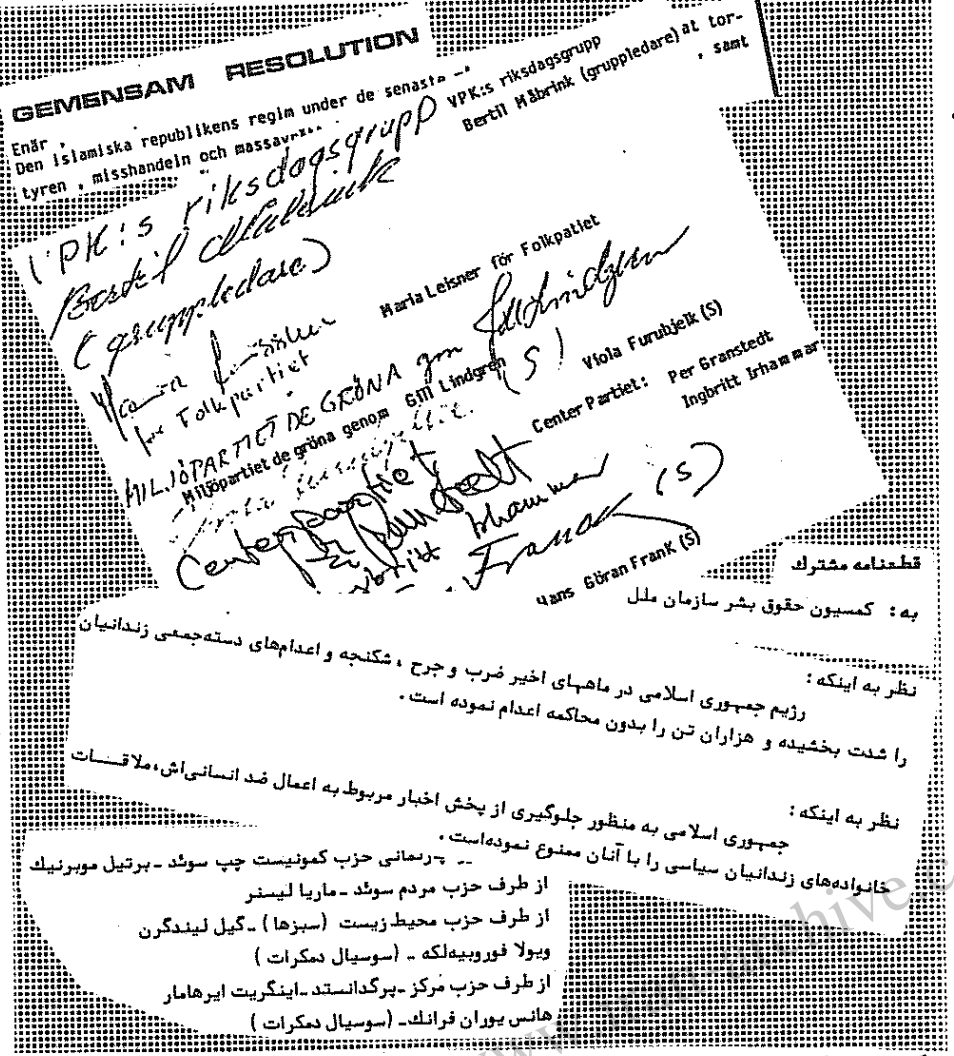 GEMENSAM RESOLUTION
Enär ,
Den islamiska republikens regim under de senaste
tyren , misshandeln och
at tor-
, samt
VPK:s riksdagsgrupp
Bertil Måbrink (gruppledare)
VPK:s riksdagsgrupp
Bertil Måbrink
(gruppledare)
Maria Leisner för Folkpatiet
Maria Leissner
för Folkpartiet
MILJÖPARTIET DE GRÖNA gm
Miljöpartiet de gröna genom Gill Lindgren
(S)
Viola Furubjelk (S)
Center Partiet: Per Granstedt
Ingbritt Irhammar
Centerpartiet
Per Granstedt
Ingbritt Irhammar
Franck (S)
Hans Göran FranK (S)
قطعنامه مشترك
به : کمسیون حقوق بشر سازمان ملل
نظر به اینکه :
رژیم جمهوری اسلامی در ماههای اخیر ضرب و جرح ، شکنجه و اعدام‌های دسته‌جمعی زندانیان
را شدت بخشیده و هزاران تن را بدون محاکمه اعدام نموده است .
نظر به اینکه :
جمهوری اسلامی به منظور جلوگیری از پخش اخبار مربوط به اعمال ضد انسانی‌اش، ملاقــات
خانواده‌های زندانیان سیاسی را با آنان ممنوع نموده‌است .
پارلمانی حزب کمونیست چپ سوئد ـ برتیل موبرنیك
از طرف حزب مردم سوئد ـ ماریا لیسنر
از طرف حزب محیط زیست (سبزها ) ـ گیل لیندگرن
ویولا فوروبیه‌لکه ـ (سوسیال دمکرات )
از طرف حزب مرکز ـ پرگدانستد ـ اینگریت ایرهامار
هانس یوران فرانك ـ (سوسیال دمکرات )